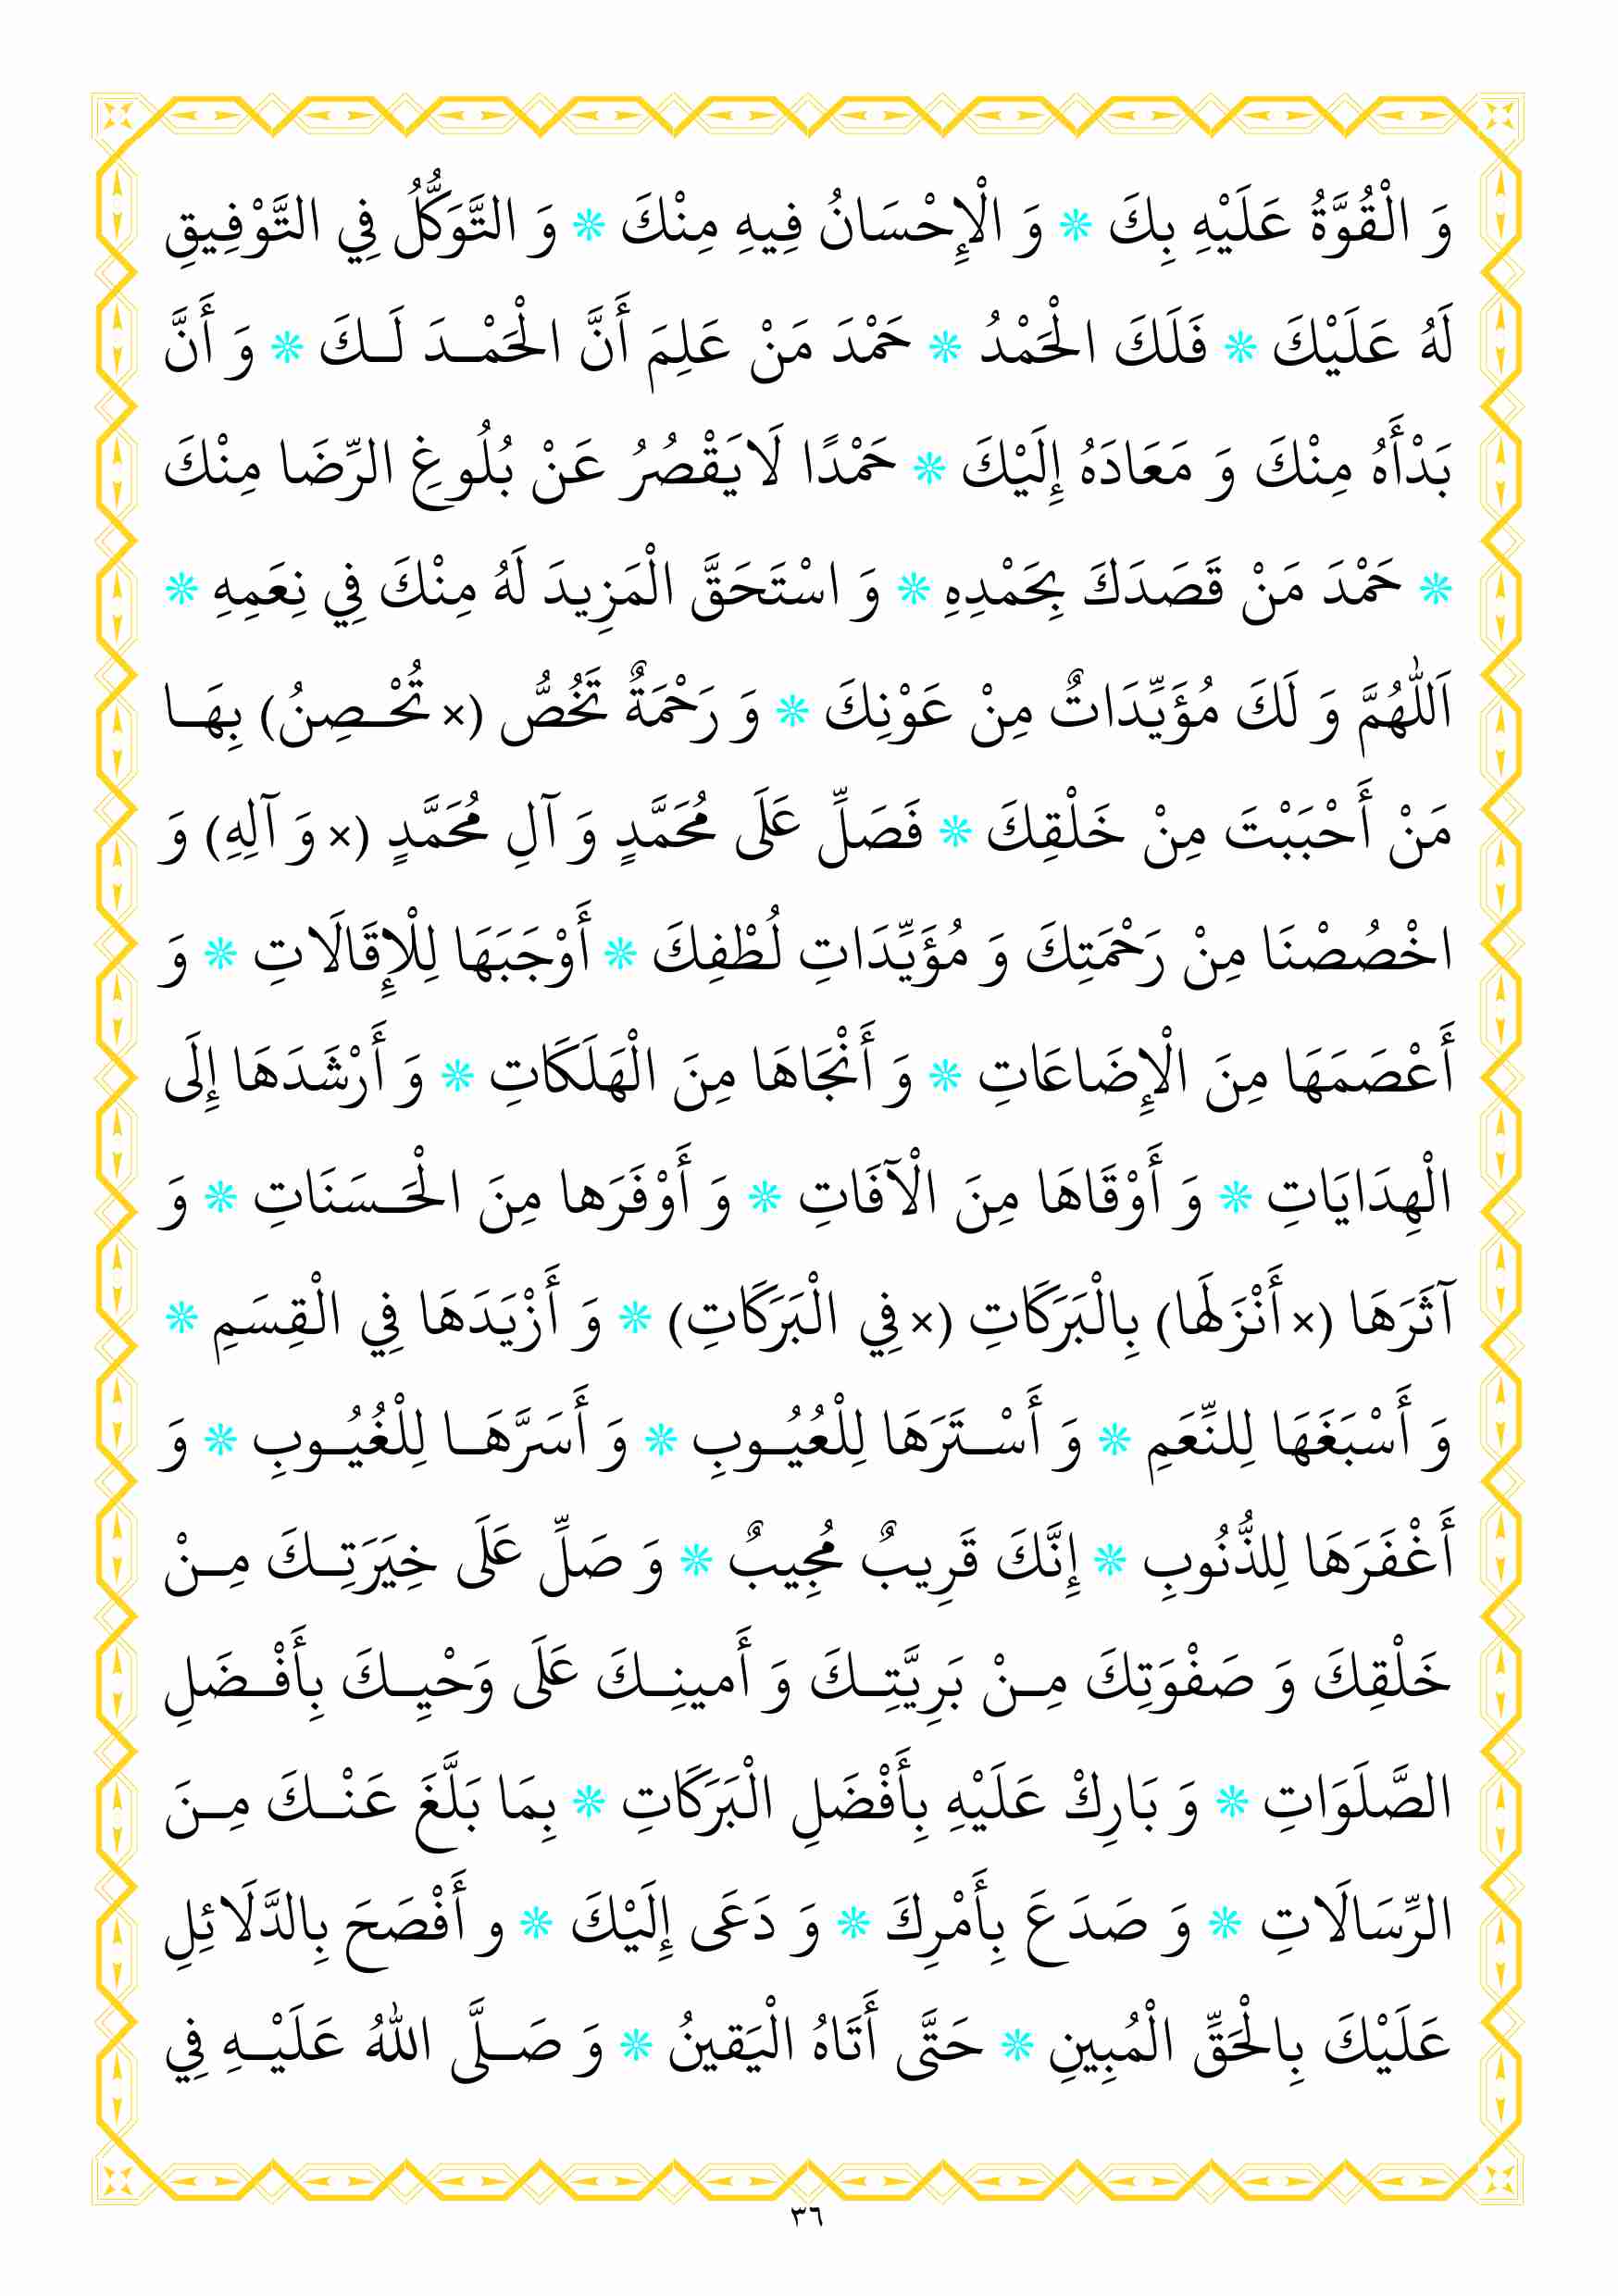 وَ الْقُوَّةُ عَلَيْهِ بِكَ * وَ الْإِحْسَانُ فِيهِ مِنْكَ * وَ التَّوَكُّلُ فِي التَّوْفِيقِ
لَهُ عَلَيْكَ * فَلَكَ الْحَمْدُ * حَمْدَ مَنْ عَلِمَ أَنَّ الْحَمْدَ لَكَ * وَ أَنَّ
بَدْأَهُ مِنْكَ وَ مَعَادَهُ إِلَيْكَ * حَمْدًا لَايَقْصُرُ عَنْ بُلُوغِ الرِّضَا مِنْكَ
* حَمْدَ مَنْ قَصَدَكَ بِحَمْدِهِ * وَ اسْتَحَقَّ الْمَزِيدَ لَهُ مِنْكَ فِي نِعَمِهِ *
اَللّٰهُمَّ وَ لَكَ مُؤَيِّدَاتٌ مِنْ عَوْنِكَ * وَ رَحْمَةٌ تَخُصُّ (× تُحْصِنُ) بِهَا
مَنْ أَحْبَبْتَ مِنْ خَلْقِكَ * فَصَلِّ عَلَى مُحَمَّدٍ وَ آلِ مُحَمَّدٍ (× وَ آلِهِ) وَ
اخْصُصْنَا مِنْ رَحْمَتِكَ وَ مُؤَيِّدَاتِ لُطْفِكَ * أَوْجَبَهَا لِلْإِقَالَاتِ * وَ
أَعْصَمَهَا مِنَ الْإِضَاعَاتِ * وَ أَنْجَاهَا مِنَ الْهَلَكَاتِ * وَ أَرْشَدَهَا إِلَى
الْهِدَايَاتِ * وَ أَوْقَاهَا مِنَ الْآفَاتِ * وَ أَوْفَرَها مِنَ الْحَسَنَاتِ * وَ
آثَرَهَا (× أَنْزَلَهَا) بِالْبَرَكَاتِ (× فِي الْبَرَكَاتِ) * وَ أَزْيَدَهَا فِي الْقِسَمِ *
وَ أَسْبَغَهَا لِلنِّعَمِ * وَ أَسْتَرَهَا لِلْعُيُوبِ * وَ أَسَرَّهَا لِلْغُيُوبِ * وَ
أَغْفَرَهَا لِلذُّنُوبِ * إِنَّكَ قَرِيبٌ مُجِيبٌ * وَ صَلِّ عَلَى خِيَرَتِكَ مِنْ
خَلْقِكَ وَ صَفْوَتِكَ مِنْ بَرِيَّتِكَ وَ أَمينِكَ عَلَى وَحْيِكَ بِأَفْضَلِ
الصَّلَوَاتِ * وَ بَارِكْ عَلَيْهِ بِأَفْضَلِ الْبَرَكَاتِ * بِمَا بَلَّغَ عَنْكَ مِنَ
الرِّسَالَاتِ * وَ صَدَعَ بِأَمْرِكَ * وَ دَعَى إِلَيْكَ * و أَفْصَحَ بِالدَّلَائِلِ
عَلَيْكَ بِالْحَقِّ الْمُبِينِ * حَتَّى أَتَاهُ الْيَقينُ * وَ صَلَّى اللهُ عَلَيْهِ فِي
٣٦